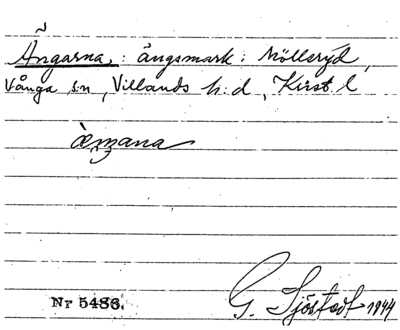 Ängarna, : ängsmark : Möllsryd,
Vånga s:n, Villands h:d, Krist. l
Nr 5486.
G. Sjöstedt 1944